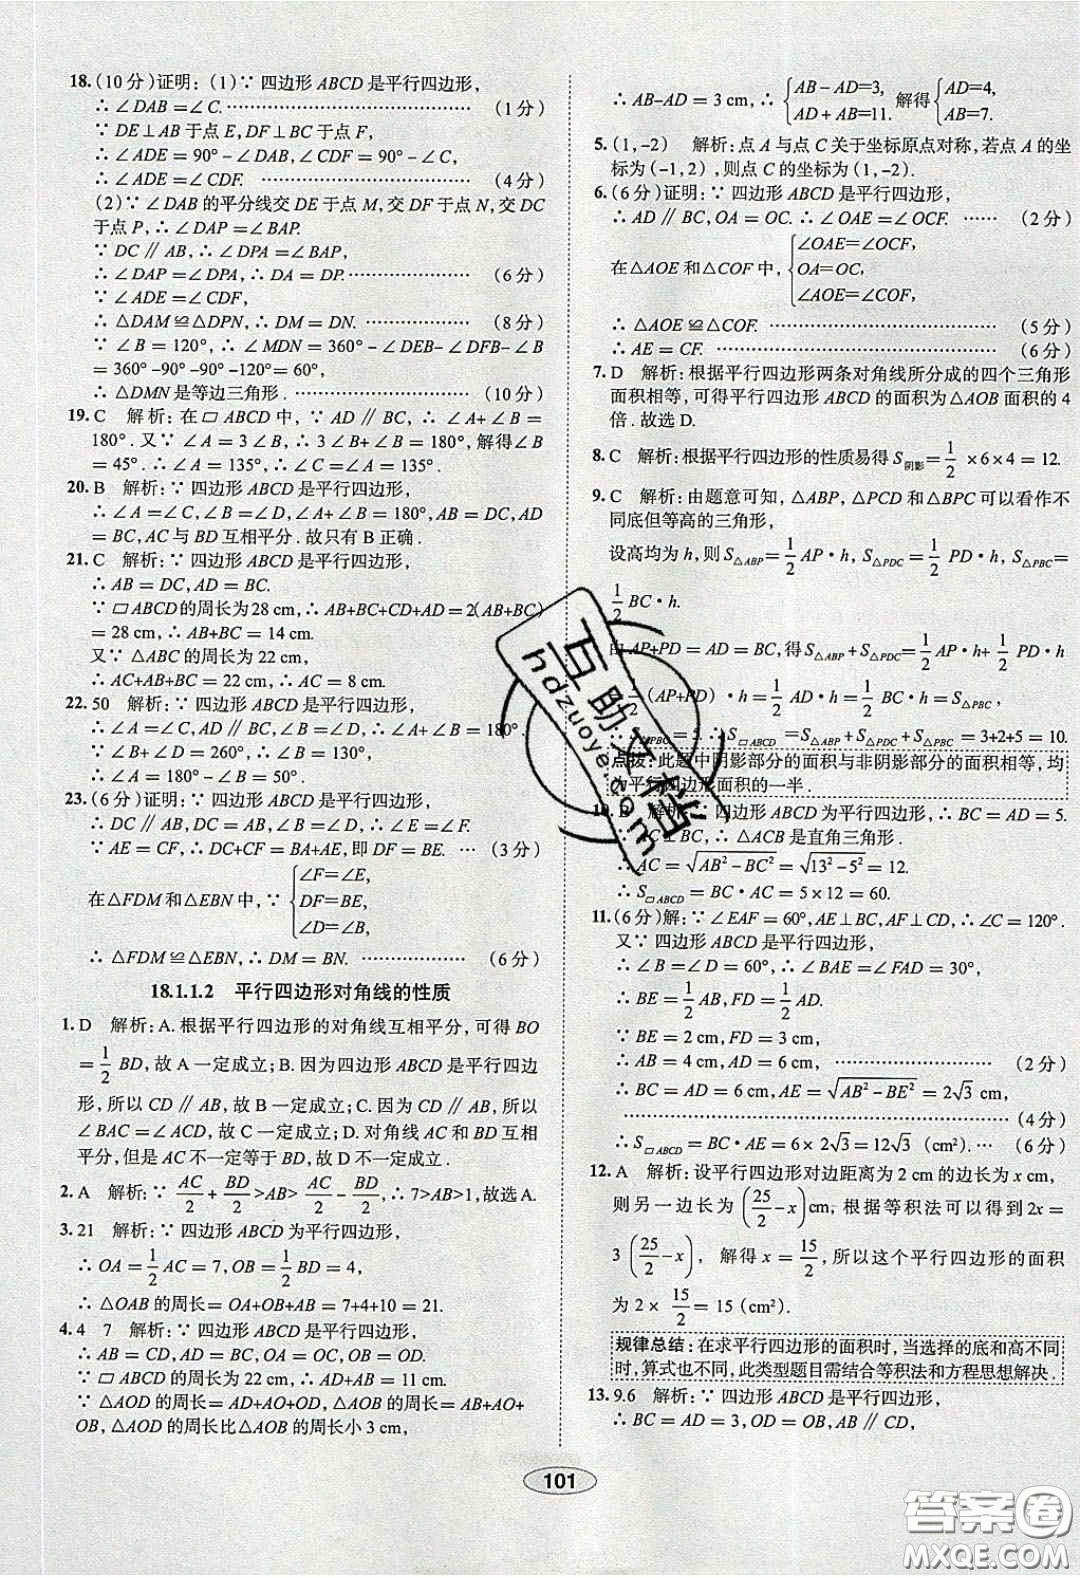 18.(10分)证明：(1)∵四边形ABCD是平行四边形，
∴∠DAB=∠C.……(1分)
∵DE⊥AB于点E,DF⊥BC于点F,
∴∠ADE=90°-∠DAB,∠CDF=90°-∠C.
∴∠ADE=∠CDF.……(4分)
(2)∵∠DAB的平分线交DE于点M,交DF于点N,交DC
于点P,∴∠DAP=∠BAP.
∵DC∥AB,∴∠DPA=∠BAP.
∴∠DAP=∠DPA,∴DA=DP.……(6分)
∵∠ADE=∠CDF,
∴△DAM≌△DPN,∴DM=DN.……(8分)
∵∠B=120°,∴∠MDN=360°-∠DEB-∠DFB-∠B
=360°-90°-90°-120°=60°,
∴△DMN是等边三角形.……(10分)
19.C 解析:在▱ABCD中,∵AD∥BC,∴∠A+∠B=
180°.又∵∠A=3∠B,∴3∠B+∠B=180°,解得∠B
=45°.∴∠A=135°,∴∠C=∠A=135°.
20.B 解析:∵四边形ABCD是平行四边形,
∴∠A=∠C,∠B=∠D,∠A+∠B=180°,AB=DC,AD
=BC,AC与BD互相平分.故只有B正确.
21.C 解析:∵四边形ABCD是平行四边形,
∴AB=DC,AD=BC.
∵▱ABCD的周长为28 cm,∴AB+BC+CD+AD=2(AB+BC)
=28 cm,∴AB+BC=14 cm.
又∵△ABC的周长为22 cm,
∴AC+AB+BC=22 cm,∴AC=8 cm.
22.50 解析:∵四边形ABCD是平行四边形,
∴∠A=∠C,AD∥BC,∠B=∠D,∴∠A+∠B=180°.
∵∠B+∠D=260°,∴∠B=130°,
∴∠A=180°-∠B=50°.
23.(6分)证明:∵四边形ABCD是平行四边形,
∴DC∥AB,DC=BA,∠B=∠D,∴∠E=∠F.
∵AE=CF,∴DC+CF=BA+AE,即DF=BE.…(3分)
在△FDM和△EBN中,∵{∠F=∠E,
DF=BE,
∠D=∠B,
∴△FDM≌△EBN,∴DM=BN.……(6分)
18.1.1.2 平行四边形对角线的性质
1.D 解析:A.根据平行四边形的对角线互相平分,可得BO
=1/2 BD,故A一定成立;B.因为四边形ABCD是平行四边
形,所以CD∥AB,故B一定成立;C.因为CD∥AB,所以
∠BAC=∠ACD,故C一定成立;D.对角线AC和BD互相
平分,但是AC不一定等于BD,故D不一定成立.
2.A 解析:∵AC/2+BD/2>AB>AC/2-BD/2,∴7>AB>1,故选A.
3.21 解析:∵四边形ABCD为平行四边形,
∴OA=1/2 AC=7,OB=1/2 BD=4,
∴△OAB的周长=OA+OB+AB=7+4+10=21.
4.4 7 解析:∵四边形ABCD是平行四边形,
∴AB=CD,AD=BC,BO=DO.
∵▱ABCD的周长为22 cm,∴AB+AD=11 cm.
∵△AOD的周长=AD+AO+OD,△AOB的周长=AB+AO+
OB,△AOD的周长比△AOB的周长小3 cm,
∴AB-AD=3 cm,∴{AB-AD=3,
AD+AB=11. 解得{AD=4,
AB=7.
5.(1,-2) 解析:点A与点C关于坐标原点对称,若点A的坐
标为(-1,2),则点C的坐标为(1,-2).
6.(6分)证明:∵四边形ABCD是平行四边形,
∴AD∥BC,OA=OC.∴∠OAE=∠OCF.……(2分)
在△AOE和△COF中,{∠OAE=∠OCF,
OA=OC,
∠AOE=∠COF,
∴△AOE≌△COF.……(5分)
∴AE=CF.……(6分)
7.D 解析:根据平行四边形两条对角线所分成的四个三角形
面积相等,可得平行四边形ABCD的面积为△AOB面积的4
倍.故选D.
8.C 解析:根据平行四边形的性质易得S阴影=1/2×6×4=12.
9.C 解析:由题意可知,△ABP,△PCD和△BPC可以看作不
同底但等高的三角形,
设高均为h,则S△ABP=1/2 AP·h,S△PDC=1/2 PD·h,S△PBC=
1/2 BC·h.
由AP+PD=AD=BC,得S△ABP+S△PDC=1/2 AP·h+1/2 PD·h
=1/2(AP+PD)·h=1/2 AD·h=1/2 BC·h=S△PBC,
∴S△PBC=5.∴S▱ABCD=S△ABP+S△PDC+S△PBC=3+2+5=10.
点拨:此题中阴影部分的面积与非阴影部分的面积相等,均
为平行四边形面积的一半.
10.B 解析:∵四边形ABCD为平行四边形,∴BC=AD=5.
∵AC⊥BC,∴△ACB是直角三角形.
∴AC=√(AB²-BC²)=√(13²-5²)=12.
∴S▱ABCD=BC·AC=5×12=60.
11.(6分)解:∵∠EAF=60°,AE⊥BC,AF⊥CD,∴∠C=120°.
又∵四边形ABCD是平行四边形,
∴∠B=∠D=60°,∴∠BAE=∠FAD=30°,
∴BE=1/2 AB,FD=1/2 AD.
∵BE=2 cm,FD=3 cm,
∴AB=4 cm,AD=6 cm,……(2分)
∴BC=AD=6 cm,AE=√(AB²-BE²)=2√3 cm,
……(4分)
∴S▱ABCD=BC·AE=6×2√3=12√3 (cm²).…(6分)
12.A 解析:设平行四边形对边距离为2 cm的边长为x cm,
则另一边长为(25/2-x)cm,根据等积法可以得到2x=
3(25/2-x),解得x=15/2,所以这个平行四边形的面积
为2×15/2=15(cm²).
规律总结:在求平行四边形的面积时,当选择的底和高不同
时,算式也不同,此类型题目需结合等积法和方程思想解决.
13.9.6 解析:∵四边形ABCD是平行四边形,
∴BC=AD=3,OD=OB,AB∥CD,
101
互助文档
hdzuoye.com
答案圈
MXQE.COM